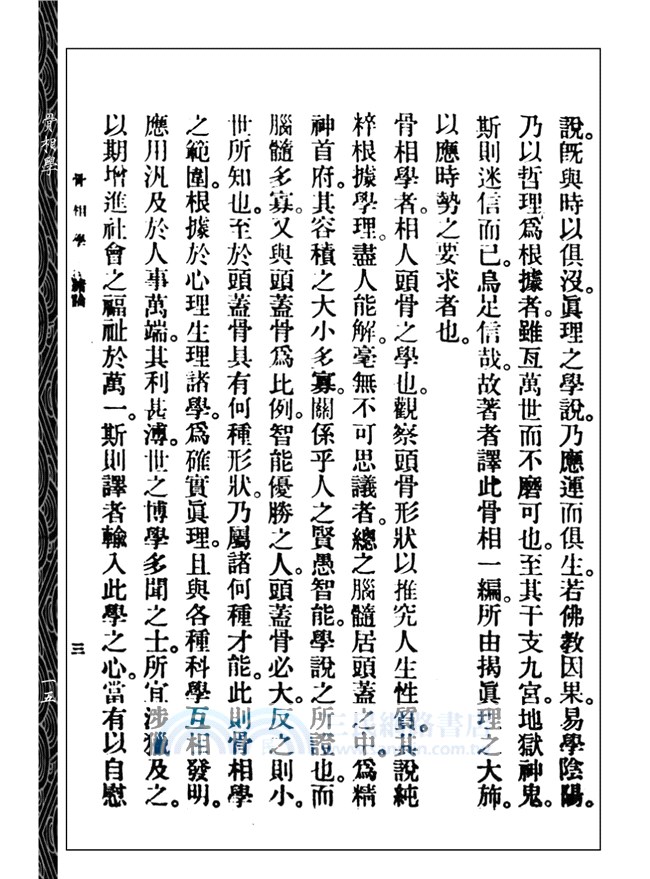 說。既與時以俱沒。眞理之學說。乃應運而俱生。若佛教因果。易學陰陽。
乃以哲理爲根據者。雖亙萬世而不磨可也。至其干支九宮。地獄神鬼。
斯則迷信而已。烏足信哉。故著者譯此骨相一編。所由揭眞理之大旆。
以應時勢之要求者也。
骨相學者。相人頭骨之學也。觀察頭骨形狀以推究人生性質。其說純
粹根據學理。盡人能解。毫無不可思議者。總之腦髓居頭蓋之中。爲精
神首府。其容積之大小多寡。關係乎人之賢愚智能。學說之所證也。而
腦髓多寡。又與頭蓋骨爲比例。智能優勝之人。頭蓋骨必大。反之則小。
世所知也。至於頭蓋骨具有何種形狀。乃屬諸何種才能。此則骨相學
之範圍。根據於心理生理諸學。爲確實眞理。且與各種科學互相發明。
應用汎及於人事萬端。其利甚溥。世之博學多聞之士。所宜涉獵及之。
以期增進社會之福祉於萬一。斯則譯者輸入此學之心。當有以自慰
骨相學
三
骨相學
一五
三民網路書店